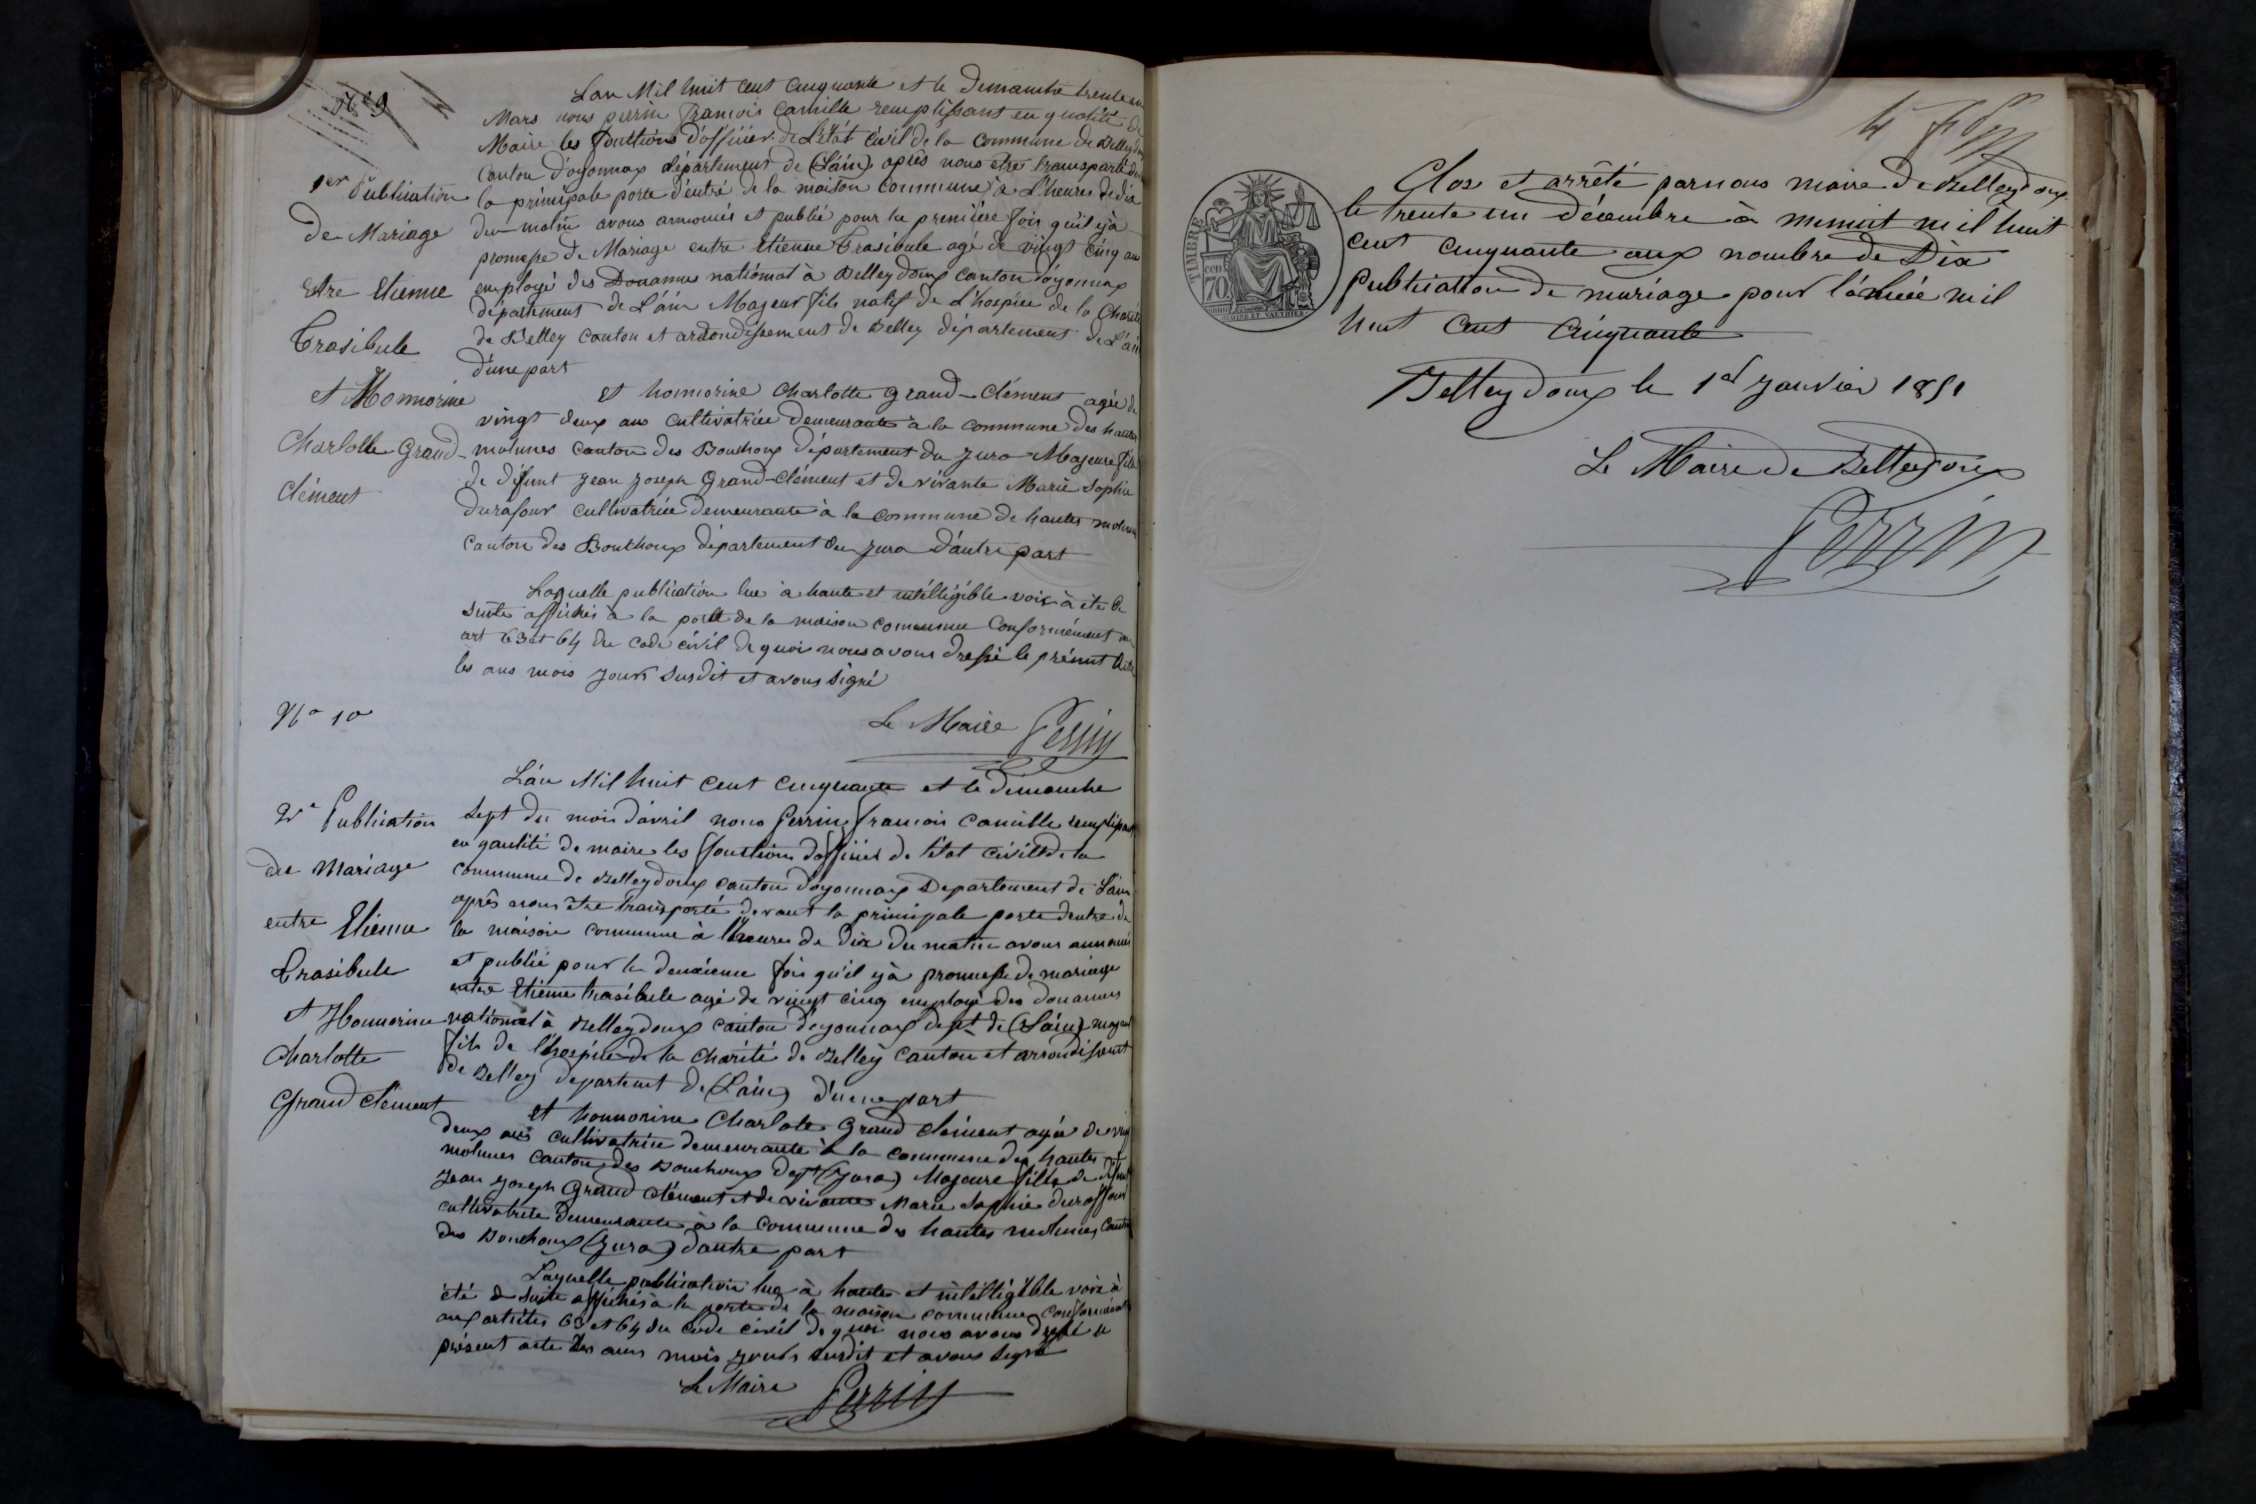 N° 9
1er Publication
de Mariage
Etre Etienne
Trasibule
et Honnorine
Charlotte Grand-
Clément
L'an Mil huit cent cinquante et le Dimanche trente un
Mars nous perrin François Camille remplissant en qualité de
Maire les fonctions d'officier de L'Etat Civil de la Commune de Belleydoux
Canton d'oyonnax département de (L'ain) après nous etre transporté
la principale porte d'entré de la maison Commune à L'heure de dix
du matin avons annoncés et publié pour la première fois qu'il y à
promesse de Mariage entre Etienne Trasibule agé de vingt cinq ans
employé des Douannes national à Belleydoux Canton d'oyonnax
département de L'ain Majeur fils natif de L'hospice de la Charité
de Belley Canton et arrondissement de Belley département de L'ain
d'une part
et honnorine Charlotte grand-Clément agée de
vingt deux ans Cultivatrice demeurante à la Commune des hautes
molunes Canton des Bouchoux département du Jura Majeure fille
de défunt Jean Joseph Grand-Clément et de vivante Marie Sophie
durafour Cultivatrice demeurante à la Commune de hautes molunes
Canton des Bouchoux département du Jura d'autre part
Laquelle publication lue à haute et intélligible voix à été de
suite affichés à la porte de la maison Commune Conformément au
art 63 et 64 du Code civil de quoi nous avons dressé le présent acte
les ans mois jours susdit et avons signé
Le Maire Perrin
N° 10
2e Publication
de Mariage
entre Etienne
Trasibule
et Honnorine
Charlotte
Grand Clément
L'an Mil huit cent cinquante et le dimanche
Sept du mois d'avril nous Perrin françois Camille remplissant
en qaulité de maire les fonctions d'officier de l'état civil de la
Commune de Belleydoux canton d'oyonnax Departement de L'ain
après nous être transporté devant la principale porte dentré de
la maison commune à l'heure de dix du matin avons annoncé
et publié pour la deuxième fois qu'il y à promesse de mariage
entre Etienne trasibule agé de vingt cinq employé des douannes
national à Belleydoux canton d'oyonnax dept de (L'ain) majeur
fils de l'hospice de la charité de Belley canton et arrondissement
de Belley département de (L'ain) d'une part
et honnorine Charlote Grand clément agée de vingt
deux ans cultivatrice demeurante à la commune des hautes
molunes canton des Bouchoux dept (Jura) Majeure fille de défunt
Jean Joseph Grand Clément et de vivante Marie Sophie duraffour
cultivatrice demeurante à la commune des hautes molunes Canton
des Bouchoux (Jura) d'autre part
Laquelle publication lue à haute et intélligible voix à
été de suite affichés à la porte de la maison commune conformément
aux articles 63 et 64 du code civil de quoi nous avons dressé le
présent acte les ans mois jours susdit et avons signé
Le Maire Perrin
TIMBRE
COD
70
Clos et arrêté par nous maire de Belleydoux
le trente un décembre à minuit mil huit
cent cinquante aux nombre de Dix
Publication de mariage pour l'année mil
huit cent cinquante
Belleydoux le 1er Janvier 1851
Le Maire de Belleydoux
Perrin